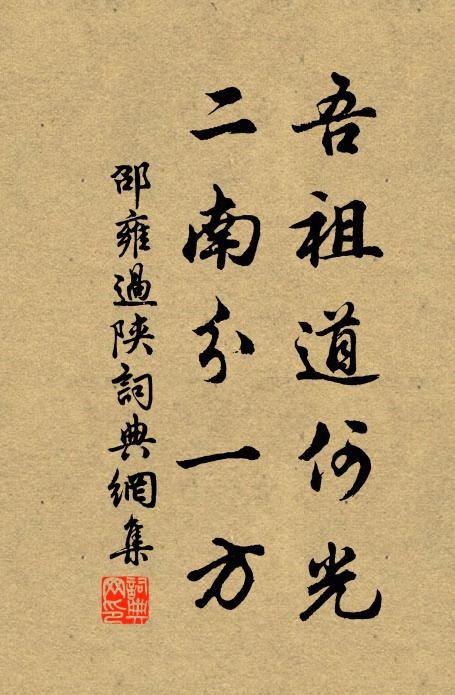 吾祖道何光
二南分一方
邵雍過陝詞典網集
詞典網印